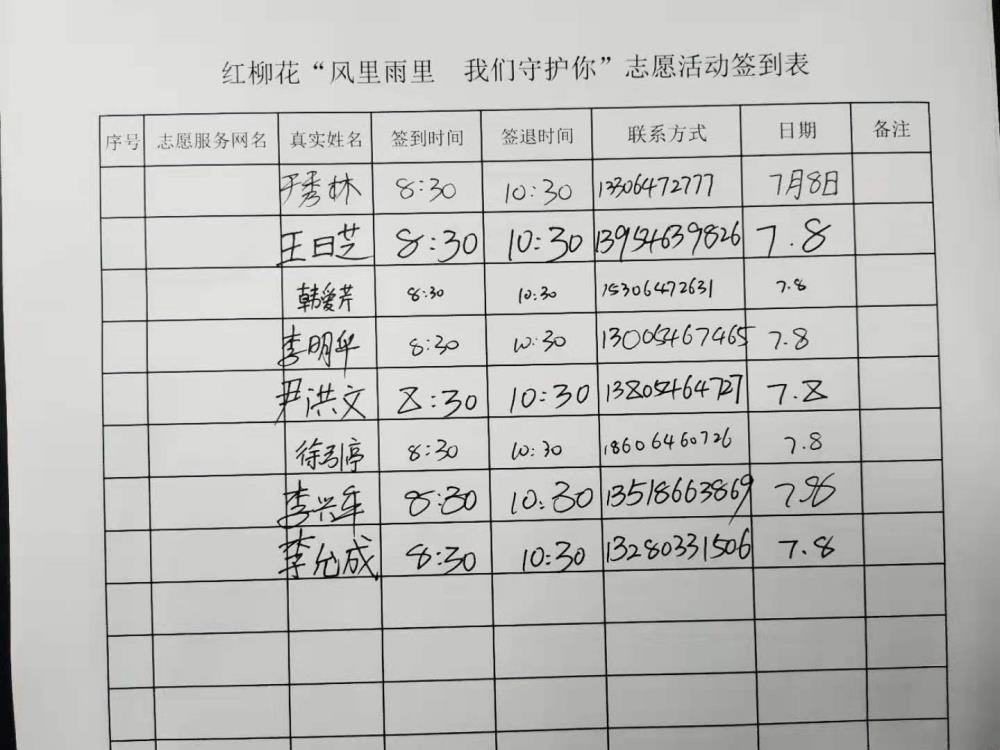 红柳花“风里雨里 我们守护你”志愿活动签到表
序号 志愿服务网名 真实姓名 签到时间 签退时间 联系方式 日期 备注
于秀林 8:30 10:30 13306472777 7月8日
王曰芝 8:30 10:30 13954639826 7.8
韩爱芹 8:30 10:30 15306472631 7.8
李明华 8:30 10:30 13005467465 7.8
尹洪文 8:30 10:30 13805464727 7.8
徐引亭 8:30 10:30 18606460726 7.8
李兴年 8:30 10:30 13518663869 7.8
李允成 8:30 10:30 13280331506 7.8